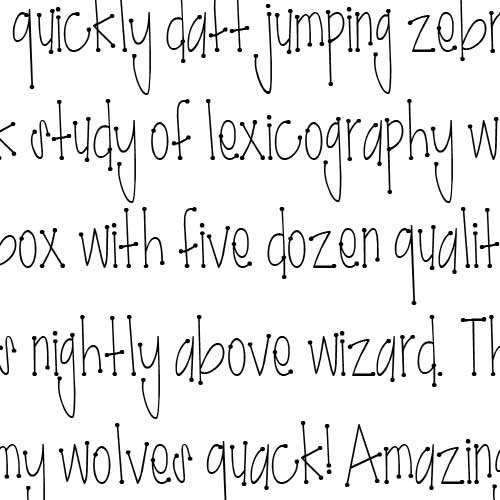 quickly daft jumping zeb
k study of lexicography w
box with five dozen qualit
s nightly above wizard. Th
my wolves quack! Amazing